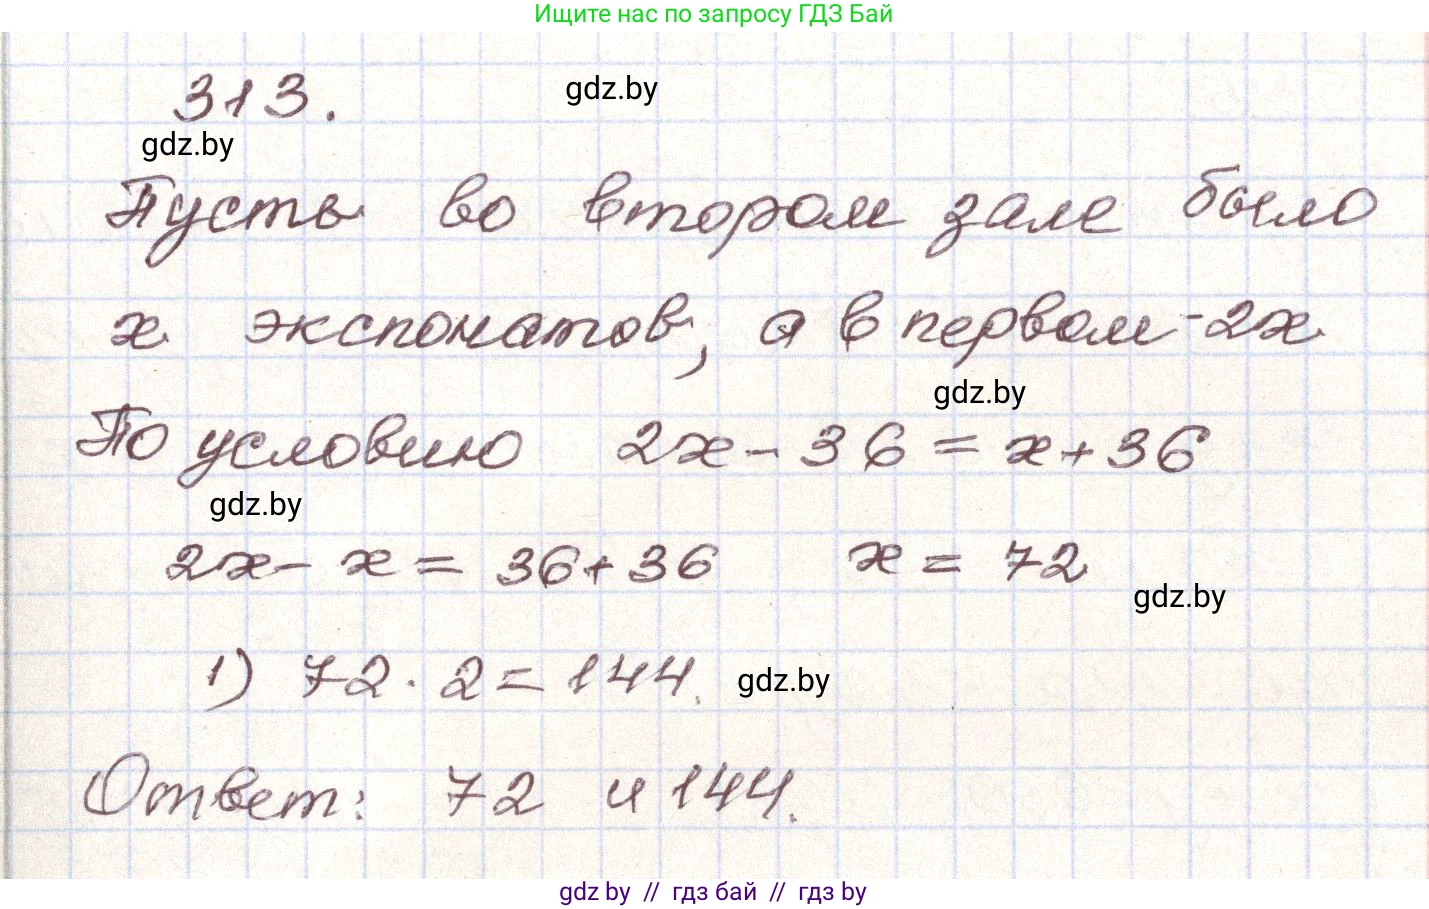 Ищите нас по запросу ГДЗ Бай
313.
gdz.by
gdz.by
Пусть во втором зале было
х экспонатов, а в первом - 2х
gdz.by
По условию 2х - 36 = х + 36
gdz.by
2х - х = 36 + 36 х = 72
gdz.by
1) 72 · 2 = 144.
gdz.by
Ответ: 72 и 144.
gdz.by // гдз бай // гдз by